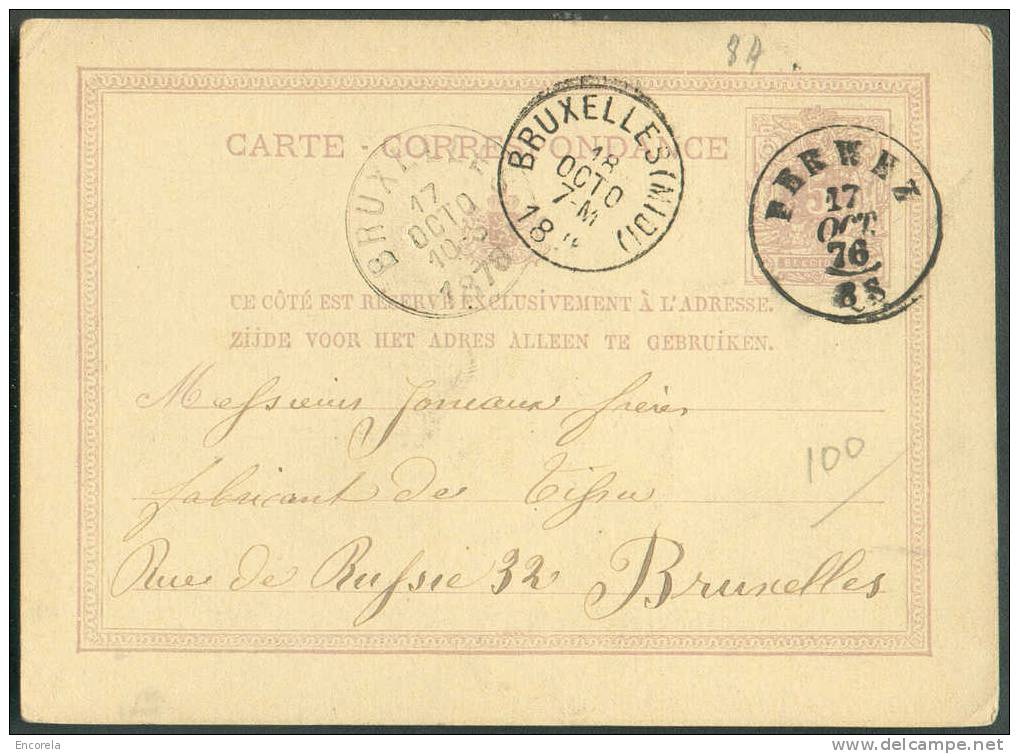 8A
CARTE - CORRESPONDANCE
BRUXELLES
17
OCTO
10-S
1876
BRUXELLES (MIDI)
18
OCTO
7-M
18
PERWEZ
17
OCT.
76
8S
5
BELGIQUE
CE CÔTÉ EST RÉSERVÉ EXCLUSIVEMENT À L'ADRESSE.
ZIJDE VOOR HET ADRES ALLEEN TE GEBRUIKEN.
Messieurs Jomeaux frères
fabricant de Tissu
Rue de Russie 32 Bruxelles
100
Encorela
www.delcampe.net